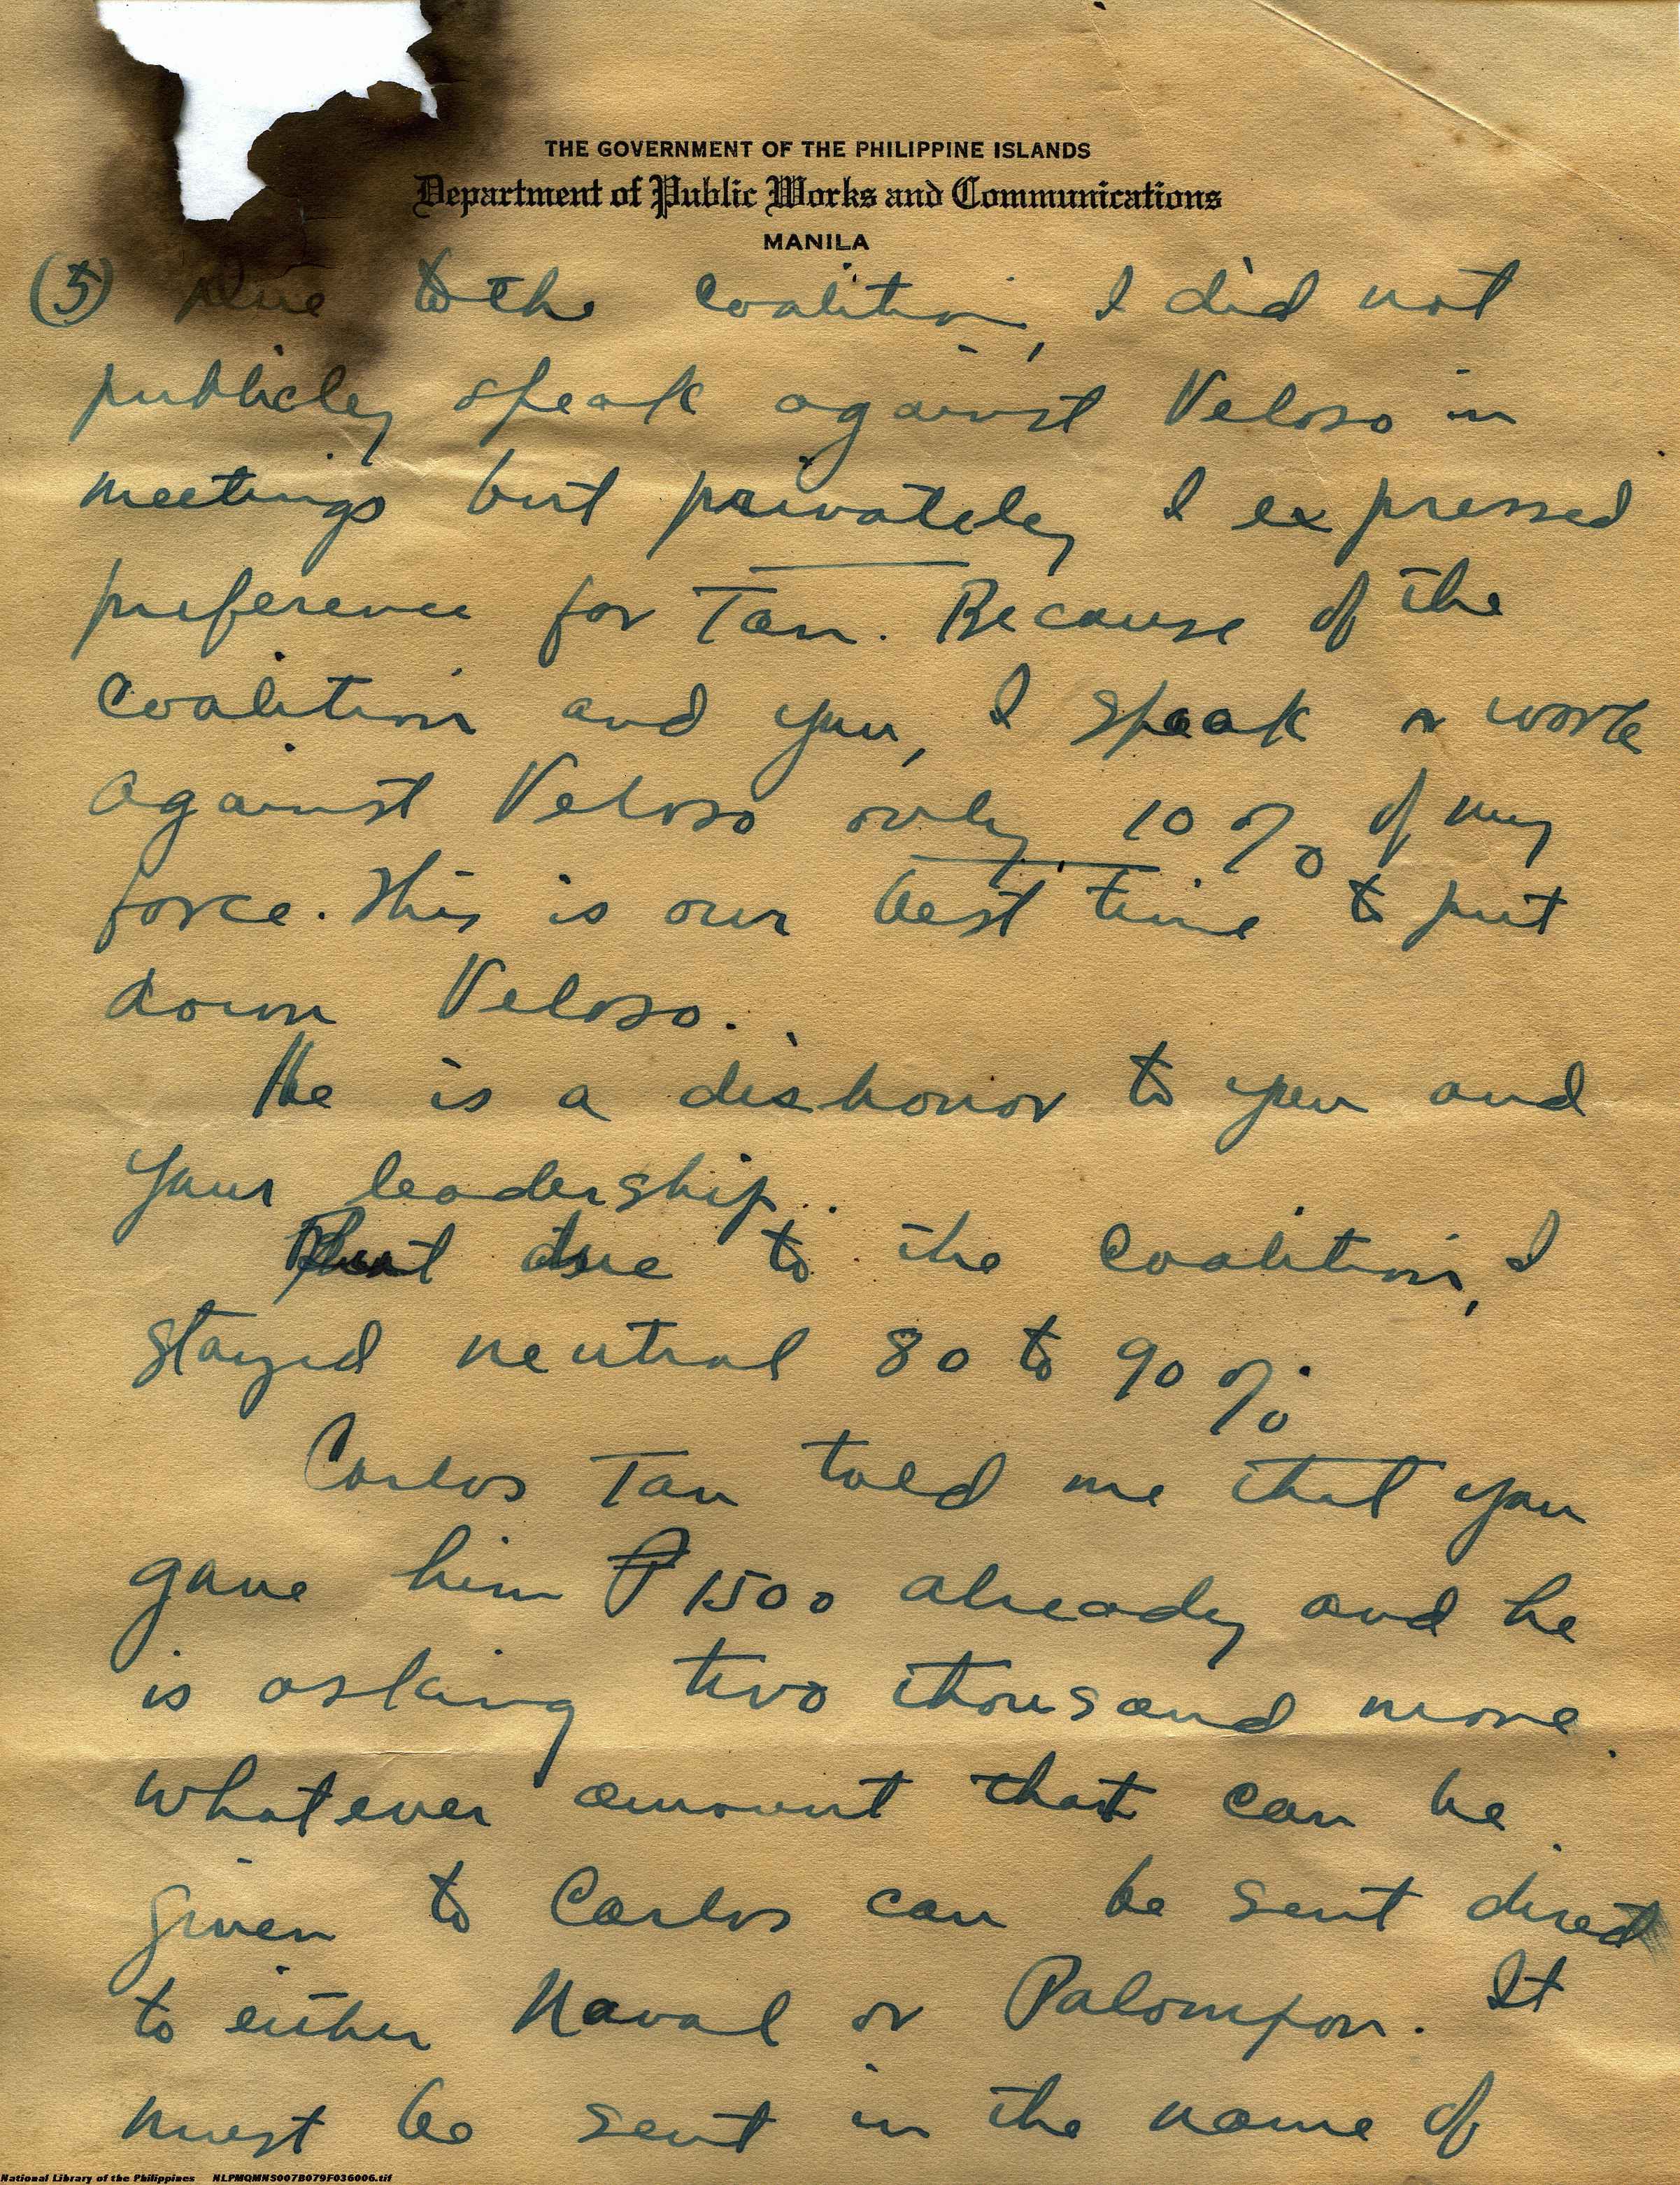 THE GOVERNMENT OF THE PHILIPPINE ISLANDS
Department of Public Works and Communications
MANILA
(5) Due to the coalition, I did not
publicly speak against Veloso in
meetings but privately I expressed
preference for Tan. Because of the
coalition and you, I speak or work
against Veloso only 10% of my
force. This is our best time to put
down Veloso.
He is a dishonor to you and
your leadership.
But due to the coalition, I
stayed neutral 80 to 90%.
Carlos Tan told me that you
gave him ₱1500 already and he
is asking two thousand more.
Whatever amount that can be
given to Carlos can be sent direct
to either Naval or Palompon. It
must be sent in the name of
National Library of the Philippines NLPMQMNS007B079F036006.tif